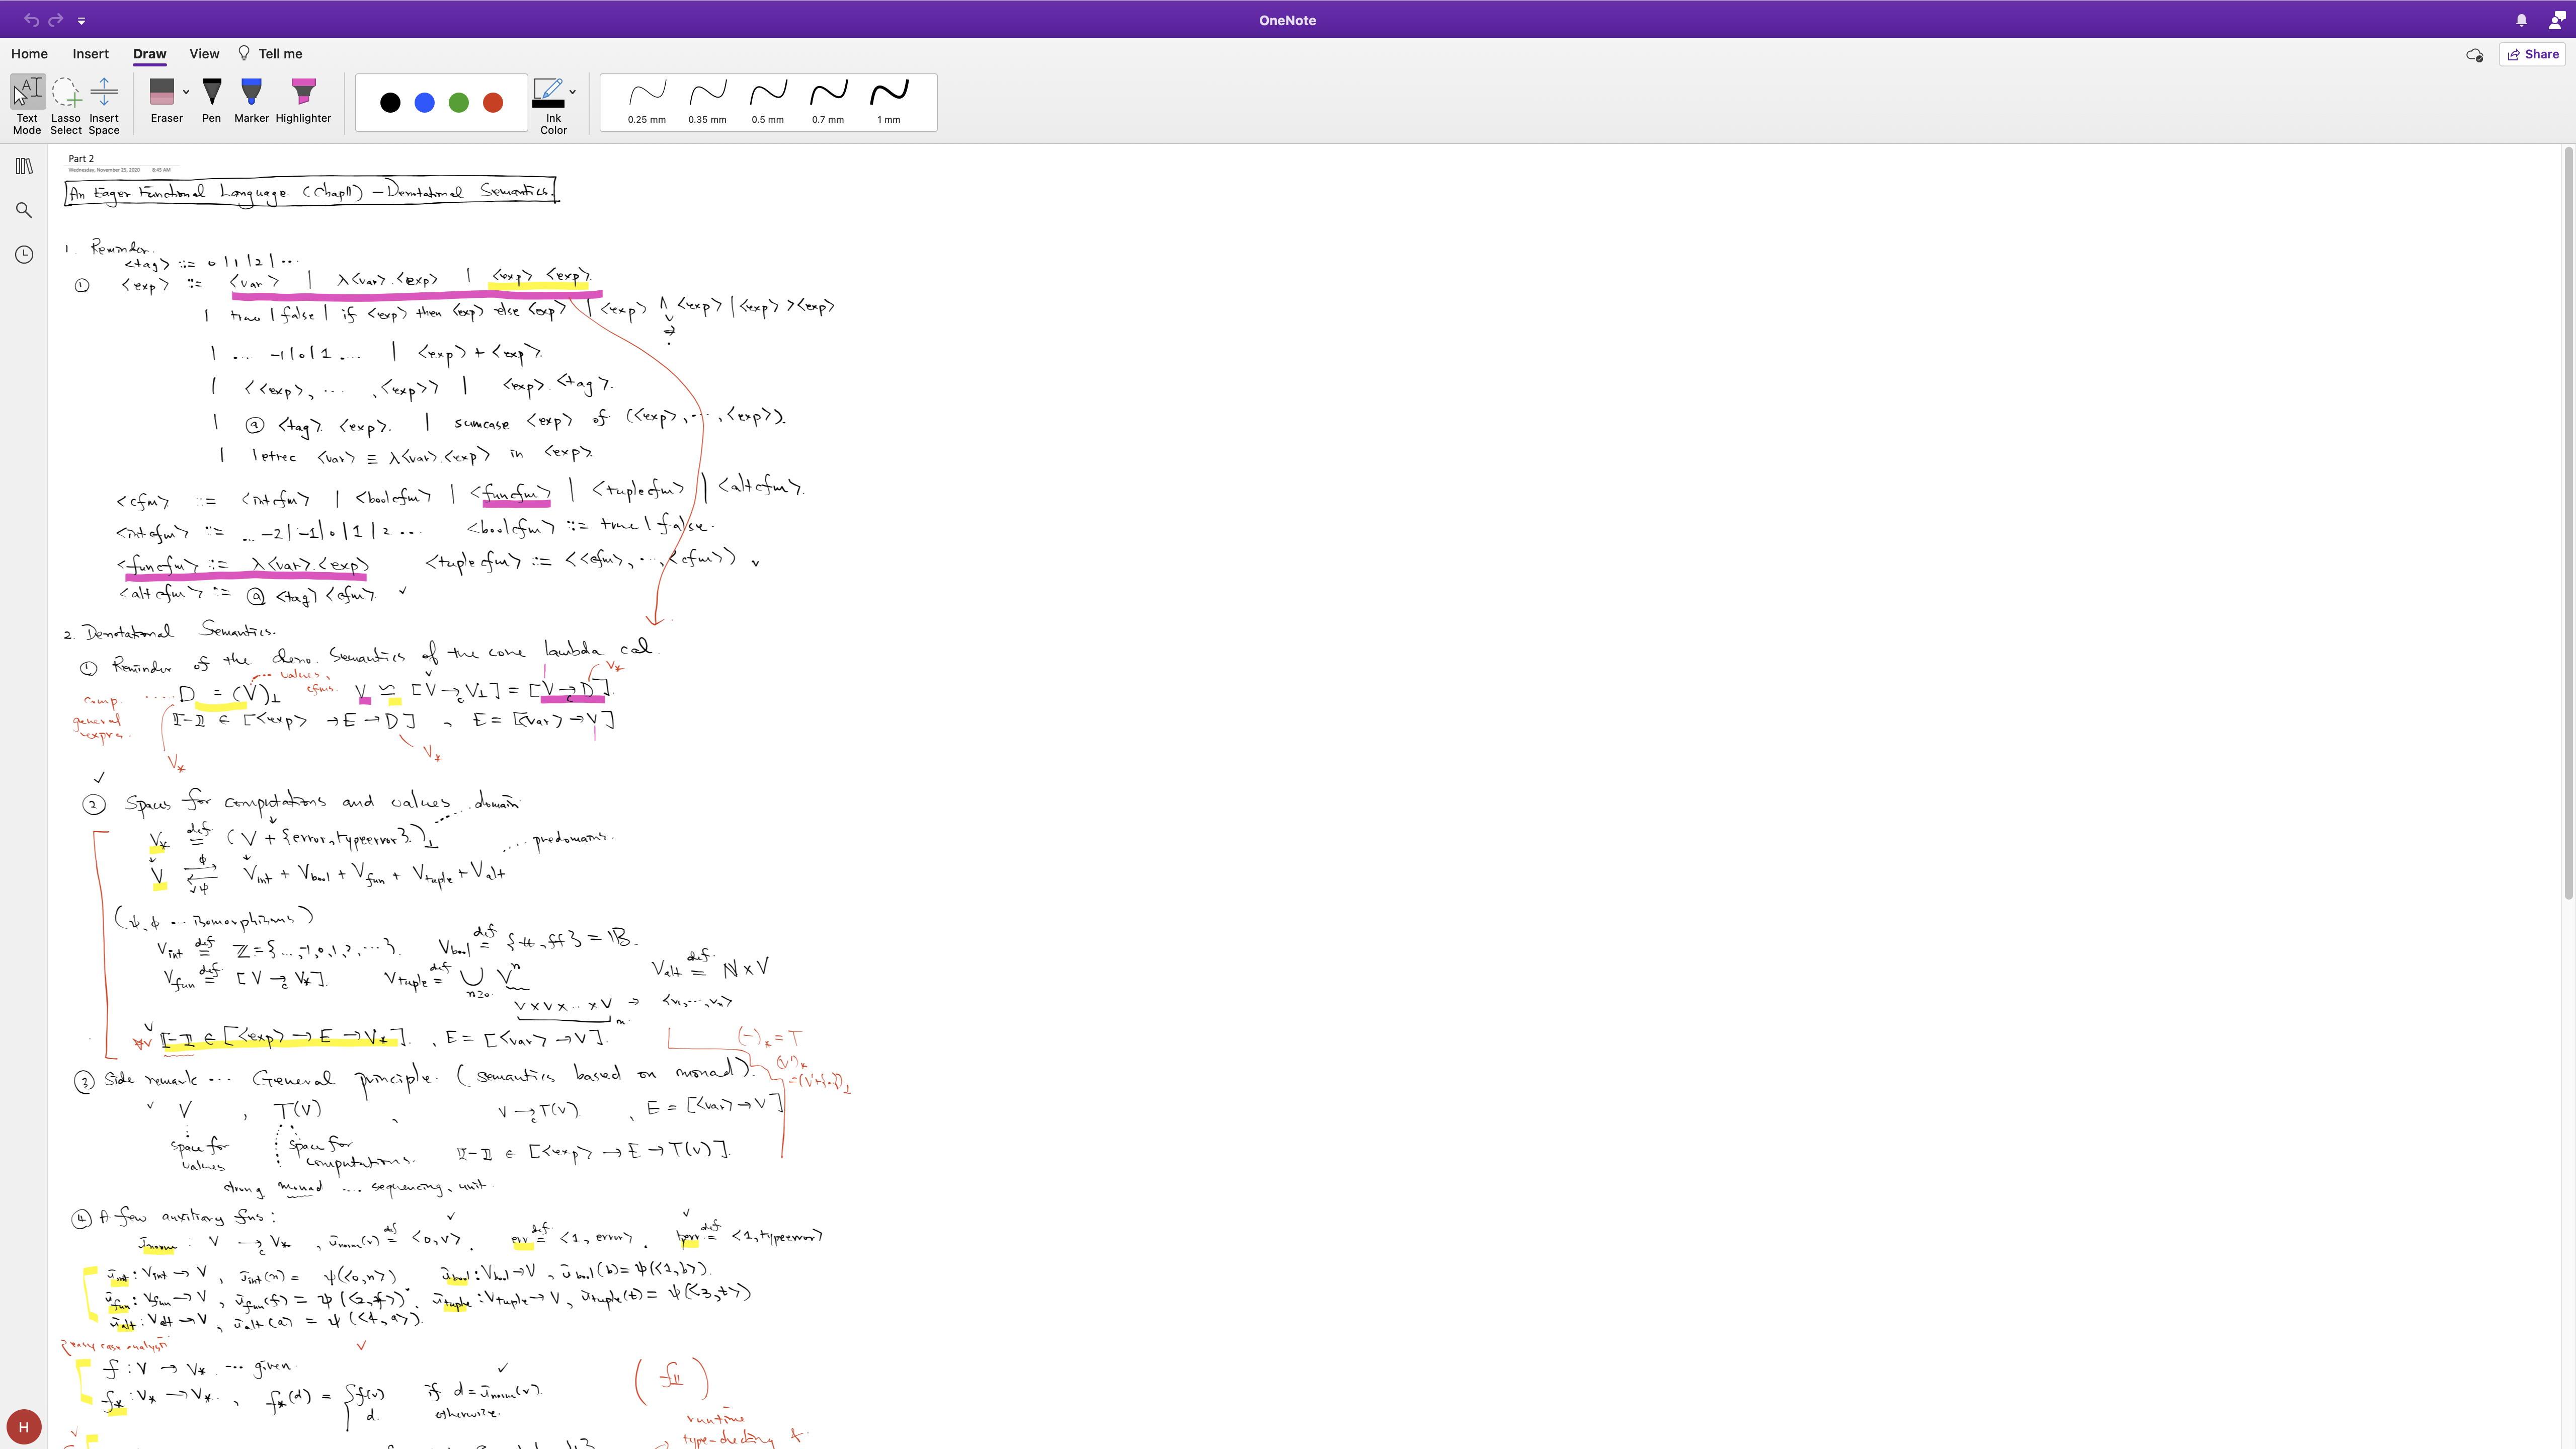 OneNote
Home Insert Draw View Tell me
Share
Text Mode Lasso Select Insert Space Eraser Pen Marker Highlighter Ink Color 0.25 mm 0.35 mm 0.5 mm 0.7 mm 1 mm
Part 2
Wednesday, November 25, 2020 8:45 AM
An Eager Functional Language (Chap11) – Denotational Semantics.
1. Reminder.
<tag> ::= 0 | 1 | 2 | ...
① <exp> ::= <var> | λ<var>.<exp> | <exp> <exp>
| true | false | if <exp> then <exp> else <exp> | <exp> ∧ <exp> | <exp> > <exp>
∨
⇒
| .... -1 | 0 | 1 .... | <exp> + <exp>.
| <<exp>, ... , <exp>> | <exp>.<tag>.
| @ <tag> <exp>. | sumcase <exp> of (<exp>, ..., <exp>).
| letrec <var> ≡ λ<var>.<exp> in <exp>.
<cfm> ::= <intcfm> | <boolcfm> | <funcfm> | <tuplecfm> | <altcfm>.
<intcfm> ::= ... -2 | -1 | 0 | 1 | 2 ... <boolcfm> ::= true | false.
<funcfm> ::= λ<var>.<exp> <tuplecfm> ::= <<cfm>, ..., <cfm>> ✓
<altcfm> ::= @ <tag> <cfm>. ✓
2. Denotational Semantics.
① Reminder of the deno. semantics of the core lambda cal.
.... values, cfms. V*
comp. general exprs. ..... D = (V)⊥ V ≃ [V →c V⊥] = [V →c D].
⟦-⟧ ∈ [<exp> → E → D] , E = [<var> → V]
V* V*
✓
② Spaces for computations and values ... domain
V* def= (V + {error, typeerror})⊥ .... predomains.
V ⇄ Vint + Vbool + Vfun + Vtuple + Valt
ϕ ψ
(ψ, ϕ ... isomorphisms)
Vint def= ℤ = {..., -1, 0, 1, 2, ...}. Vbool def= {tt, ff} = 𝔹.
Vfun def= [V →c V*]. Vtuple def= ∪n≥0 Vⁿ Valt def= ℕ × V
V × V × ... × V → <v1, ..., vn>
n
⟦-⟧ ∈ [<exp> → E → V*]. , E = [<var> → V].
(-)* = T
③ Side remark ... General principle. (semantics based on monad).
(V)* = (V+{..})⊥
V , T(V) , V →c T(V) , E = [<var> → V]
space for values space for computations. ⟦-⟧ ∈ [<exp> → E → T(V)].
strong monad ... sequencing, unit.
④ A few auxiliary fns:
ιnorm : V →c V* , ιnorm(v) def= <0, v>. err def= <1, error>. tyerr def= <1, typeerror>
ιint : Vint → V , ιint(n) = ψ(<0, n>) ιbool : Vbool → V , ιbool(b) = ψ(<1, b>).
ιfun : Vfun → V , ιfun(f) = ψ(<2, f>). ιtuple : Vtuple → V , ιtuple(t) = ψ(<3, t>)
ιalt : Valt → V , ιalt(a) = ψ(<4, a>).
case analysis
f : V → V* ... given.
f* : V* → V*. , f*(d) = { f(v) if d = ιnorm(v).
d. otherwise.
(f⊥⊥)
runtime
type-checking
H